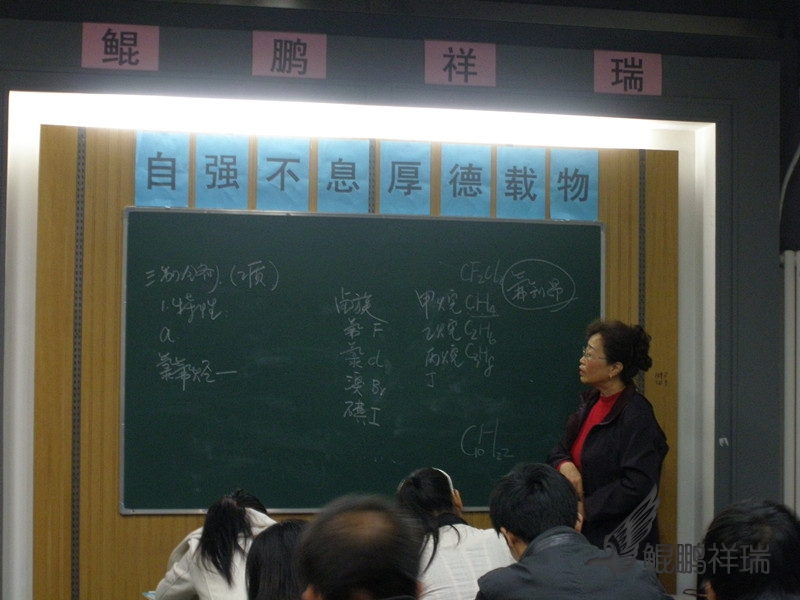 鲲 鹏 祥 瑞
自强不息厚德载物
三 制冷剂 (工质)
1.特性:
a
氯氟烃一
卤族
氟 F
氯 Cl
溴 Br
碘 I
CF₂Cl₂ 氟利昂
甲烷 CH₄
乙烷 C₂H₆
丙烷 C₃H₈
丁
C₁₀H₂₂
鲲鹏祥瑞